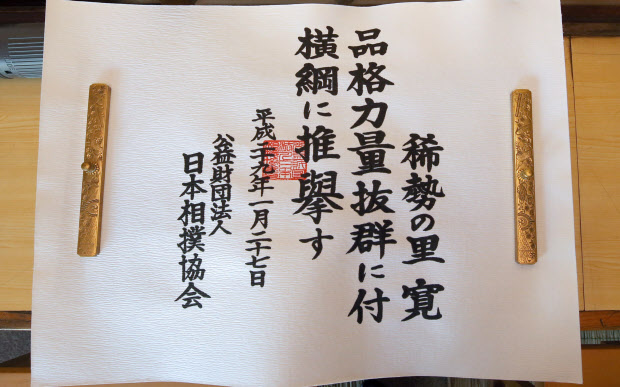 稀勢の里 寛
品格力量抜群に付
横綱に推擧す
平成二十九年一月二十七日
公益財団法人
日本相撲協会